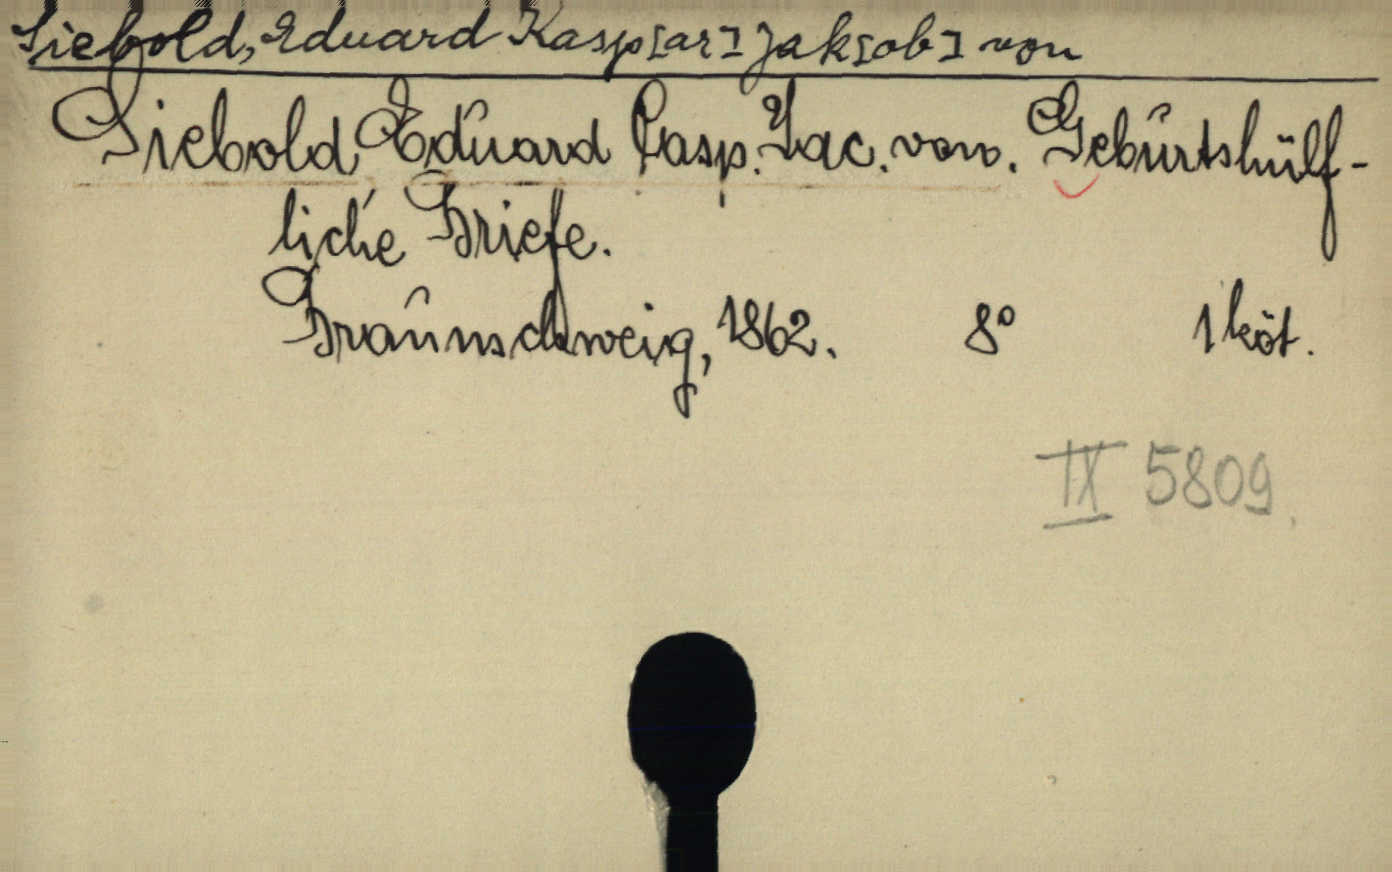 Siebold, Eduard Kasp[ar] Jak[ob] von
Siebold, Eduard Casp. Jac. von. Geburtshülf-
liche Briefe.
Braunschweig, 1862. 8° 1 köt.
IX 5809.